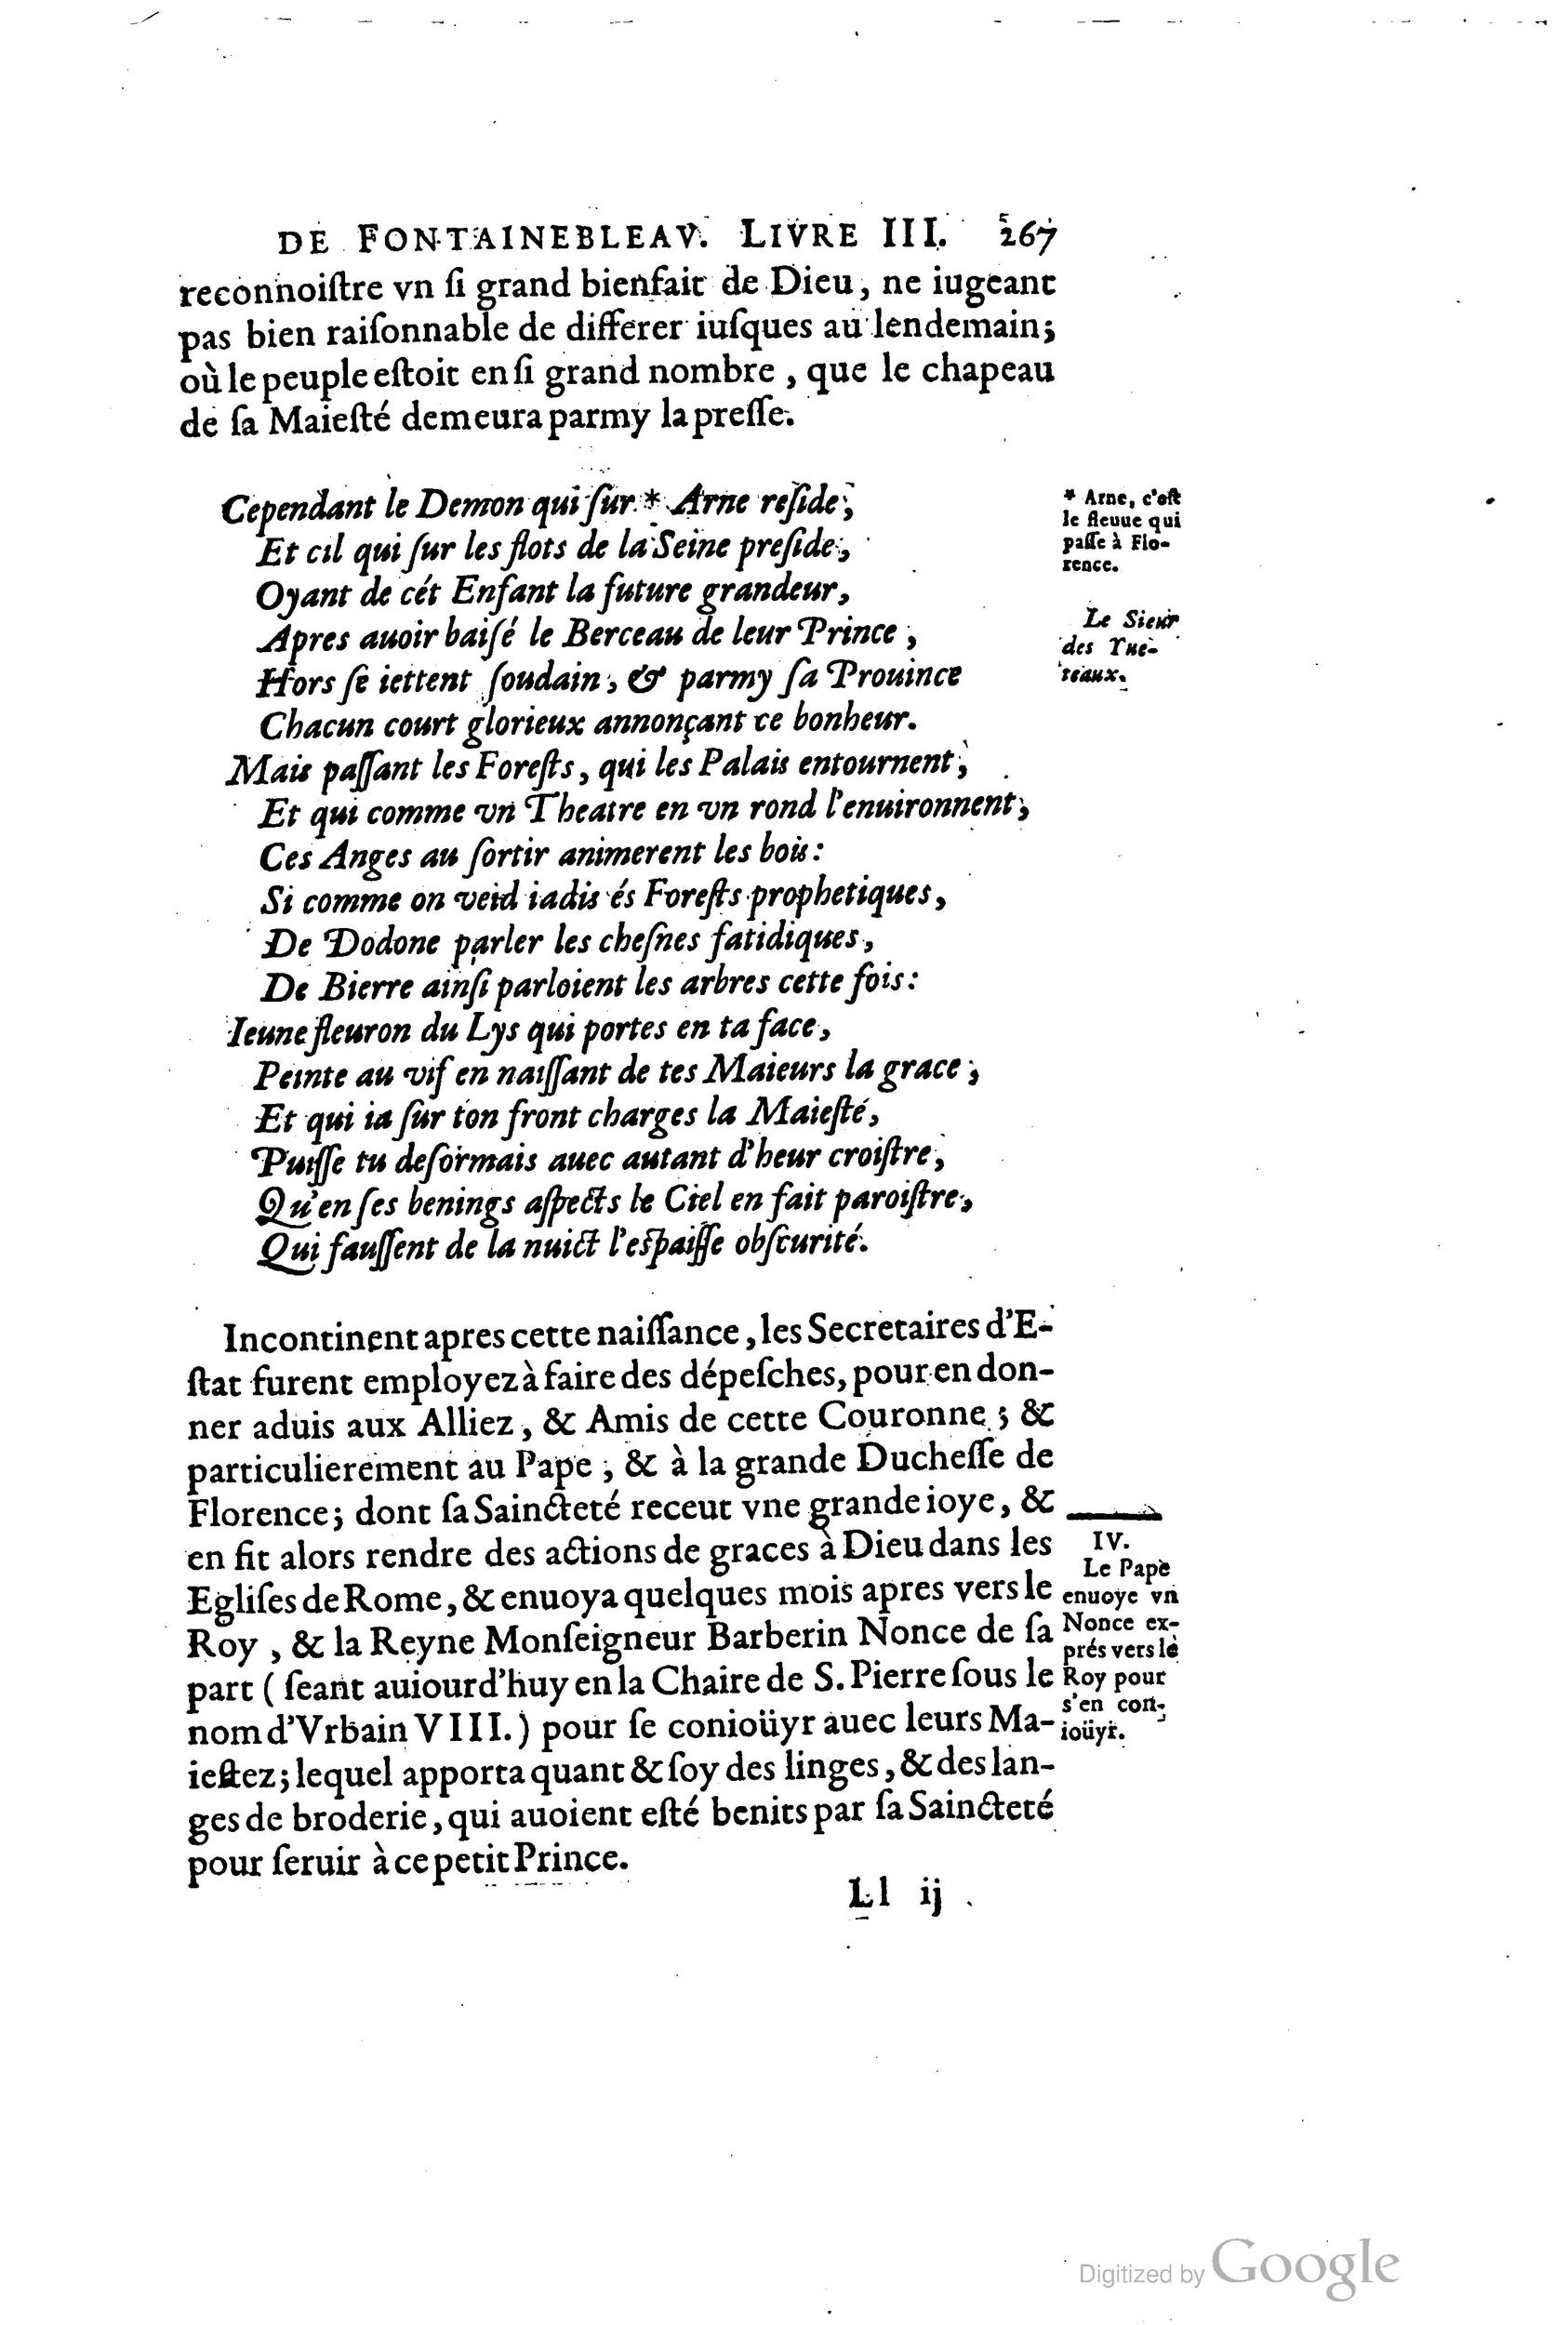 DE FONTAINEBLEAV. LIVRE III. 267
reconnoiſtre vn ſi grand bienfait de Dieu, ne iugeant
pas bien raiſonnable de differer iuſques au lendemain;
où le peuple eſtoit en ſi grand nombre, que le chapeau
de ſa Maieſté demeura parmy la preſſe.
Cependant le Demon qui ſur * Arne reſide,
Et cil qui ſur les flots de la Seine preſide,
Oyant de cét Enfant la future grandeur,
Apres auoir baiſé le Berceau de leur Prince,
Hors ſe iettent ſoudain, & parmy ſa Prouince
Chacun court glorieux annonçant ce bonheur.
Mais paſſant les Foreſts, qui les Palais entournent,
Et qui comme vn Theatre en vn rond l'enuironnent,
Ces Anges au ſortir animerent les bois:
Si comme on veid iadis és Foreſts prophetiques,
De Dodone parler les cheſnes fatidiques,
De Bierre ainſi parloient les arbres cette fois:
Ieune fleuron du Lys qui portes en ta face,
Peinte au vif en naiſſant de tes Maieurs la grace;
Et qui ia ſur ton front charges la Maieſté,
Puiſſe tu deſormais auec autant d'heur croiſtre,
Qu'en ſes benings aſpects le Ciel en fait paroiſtre,
Qui fauſſent de la nuict l'eſpaiſſe obſcurité.
* Arne, c'eſt
le fleuue qui
paſſe à Flo-
rence.
Le Sieur
des Yue-
teaux.
Incontinent apres cette naiſſance, les Secretaires d'E-
ſtat furent employez à faire des dépeſches, pour en don-
ner aduis aux Alliez, & Amis de cette Couronne; &
particulierement au Pape, & à la grande Ducheſſe de
Florence; dont ſa Saincteté receut vne grande ioye, &
en fit alors rendre des actions de graces à Dieu dans les
Egliſes de Rome, & enuoya quelques mois apres vers le
Roy, & la Reyne Monſeigneur Barberin Nonce de ſa
part (ſeant auiourd'huy en la Chaire de S. Pierre ſous le
nom d'Vrbain VIII.) pour ſe conioüyr auec leurs Ma-
ieſtez; lequel apporta quant & ſoy des linges, & des lan-
ges de broderie, qui auoient eſté benits par ſa Saincteté
pour ſeruir à ce petit Prince.
IV.
Le Pape
enuoye vn
Nonce ex-
prés vers le
Roy pour
s'en con-
ioüyr.
Ll ij
Digitized by Google